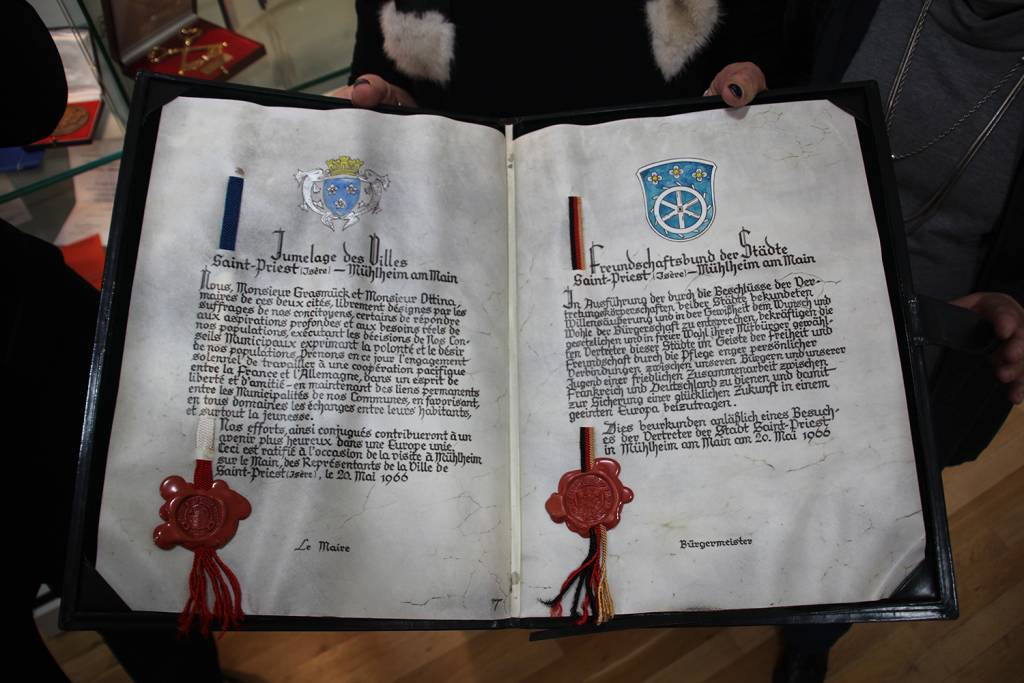 Jumelage des Villes
Saint-Priest (Isère) – Mühlheim am Main
Nous, Monsieur Grasmück et Monsieur Ottina
maires de ces deux cités, librement désignés par les
suffrages de nos concitoyens, certains de répondre
aux aspirations profondes et aux besoins réels de
nos populations, exécutant les décisions de Nos Con-
seils Municipaux exprimant la volonté et le désir
de nos populations. Prenons en ce jour l'engagement
solennel de travailler à une coopération pacifique
entre la France et l'Allemagne, dans un esprit de
liberté et d'amitié – en maintenant des liens permanents
entre les Municipalités de nos Communes, en favorisant,
en tous domaines les échanges entre leurs habitants,
et surtout la jeunesse.
Nos efforts, ainsi conjugués contribueront à un
avenir plus heureux dans une Europe unie.
Ceci est ratifié à l'occasion de la visite à Mühlheim
sur le Main, des Représentants de la Ville de
Saint-Priest (Isère), le 20. Mai 1966
Le Maire
Freundschaftsbund der Städte
Saint-Priest (Isère) – Mühlheim am Main
In Ausführung der durch die Beschlüsse der Ver-
tretungskörperschaften beider Städte bekundeten
Willensäußerung und in der Gewißheit dem Wunsch und
Wohle der Bürgerschaft zu entsprechen, bekräftigen die
gesetzlichen und in freier Wahl ihrer Mitbürger gewähl-
ten Vertreter dieser Städte im Geiste der Freiheit und
Freundschaft durch die Pflege enger persönlicher
Verbindungen zwischen unseren Bürgern und unserer
Jugend einer friedlichen Zusammenarbeit zwischen
Frankreich und Deutschland zu dienen und damit
zur Sicherung einer glücklichen Zukunft in einem
geeinten Europa beizutragen.
Dies beurkunden anläßlich eines Besuch-
es der Vertreter der Stadt Saint-Priest
in Mühlheim am Main am 20. Mai 1966
Bürgermeister